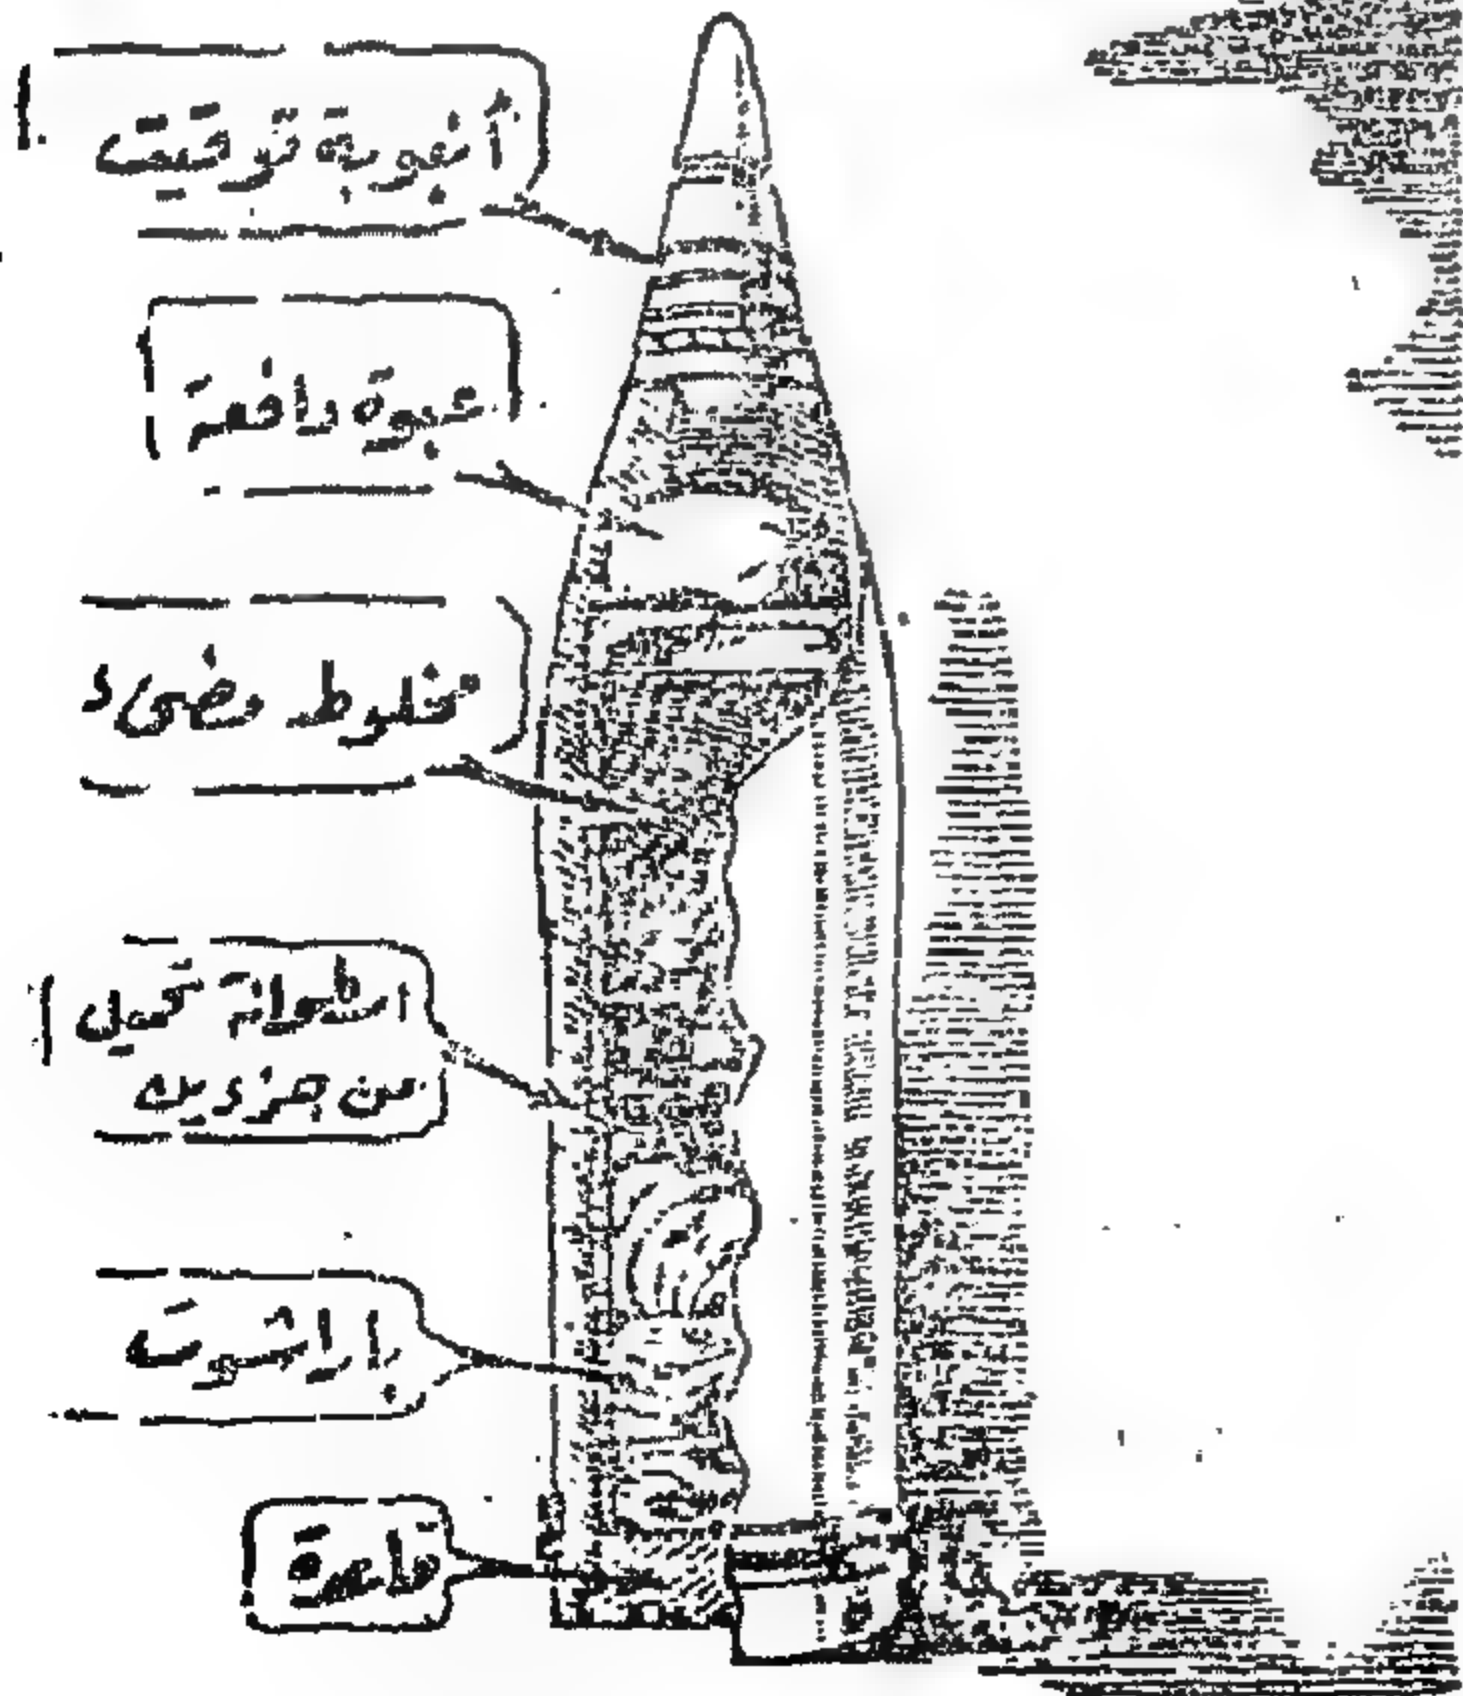 أنبوبة توقيت
عبوة دافعة
مخلوط مضىء
اسطوانة تحميل
من جزءين
باراشوت
قاعدة